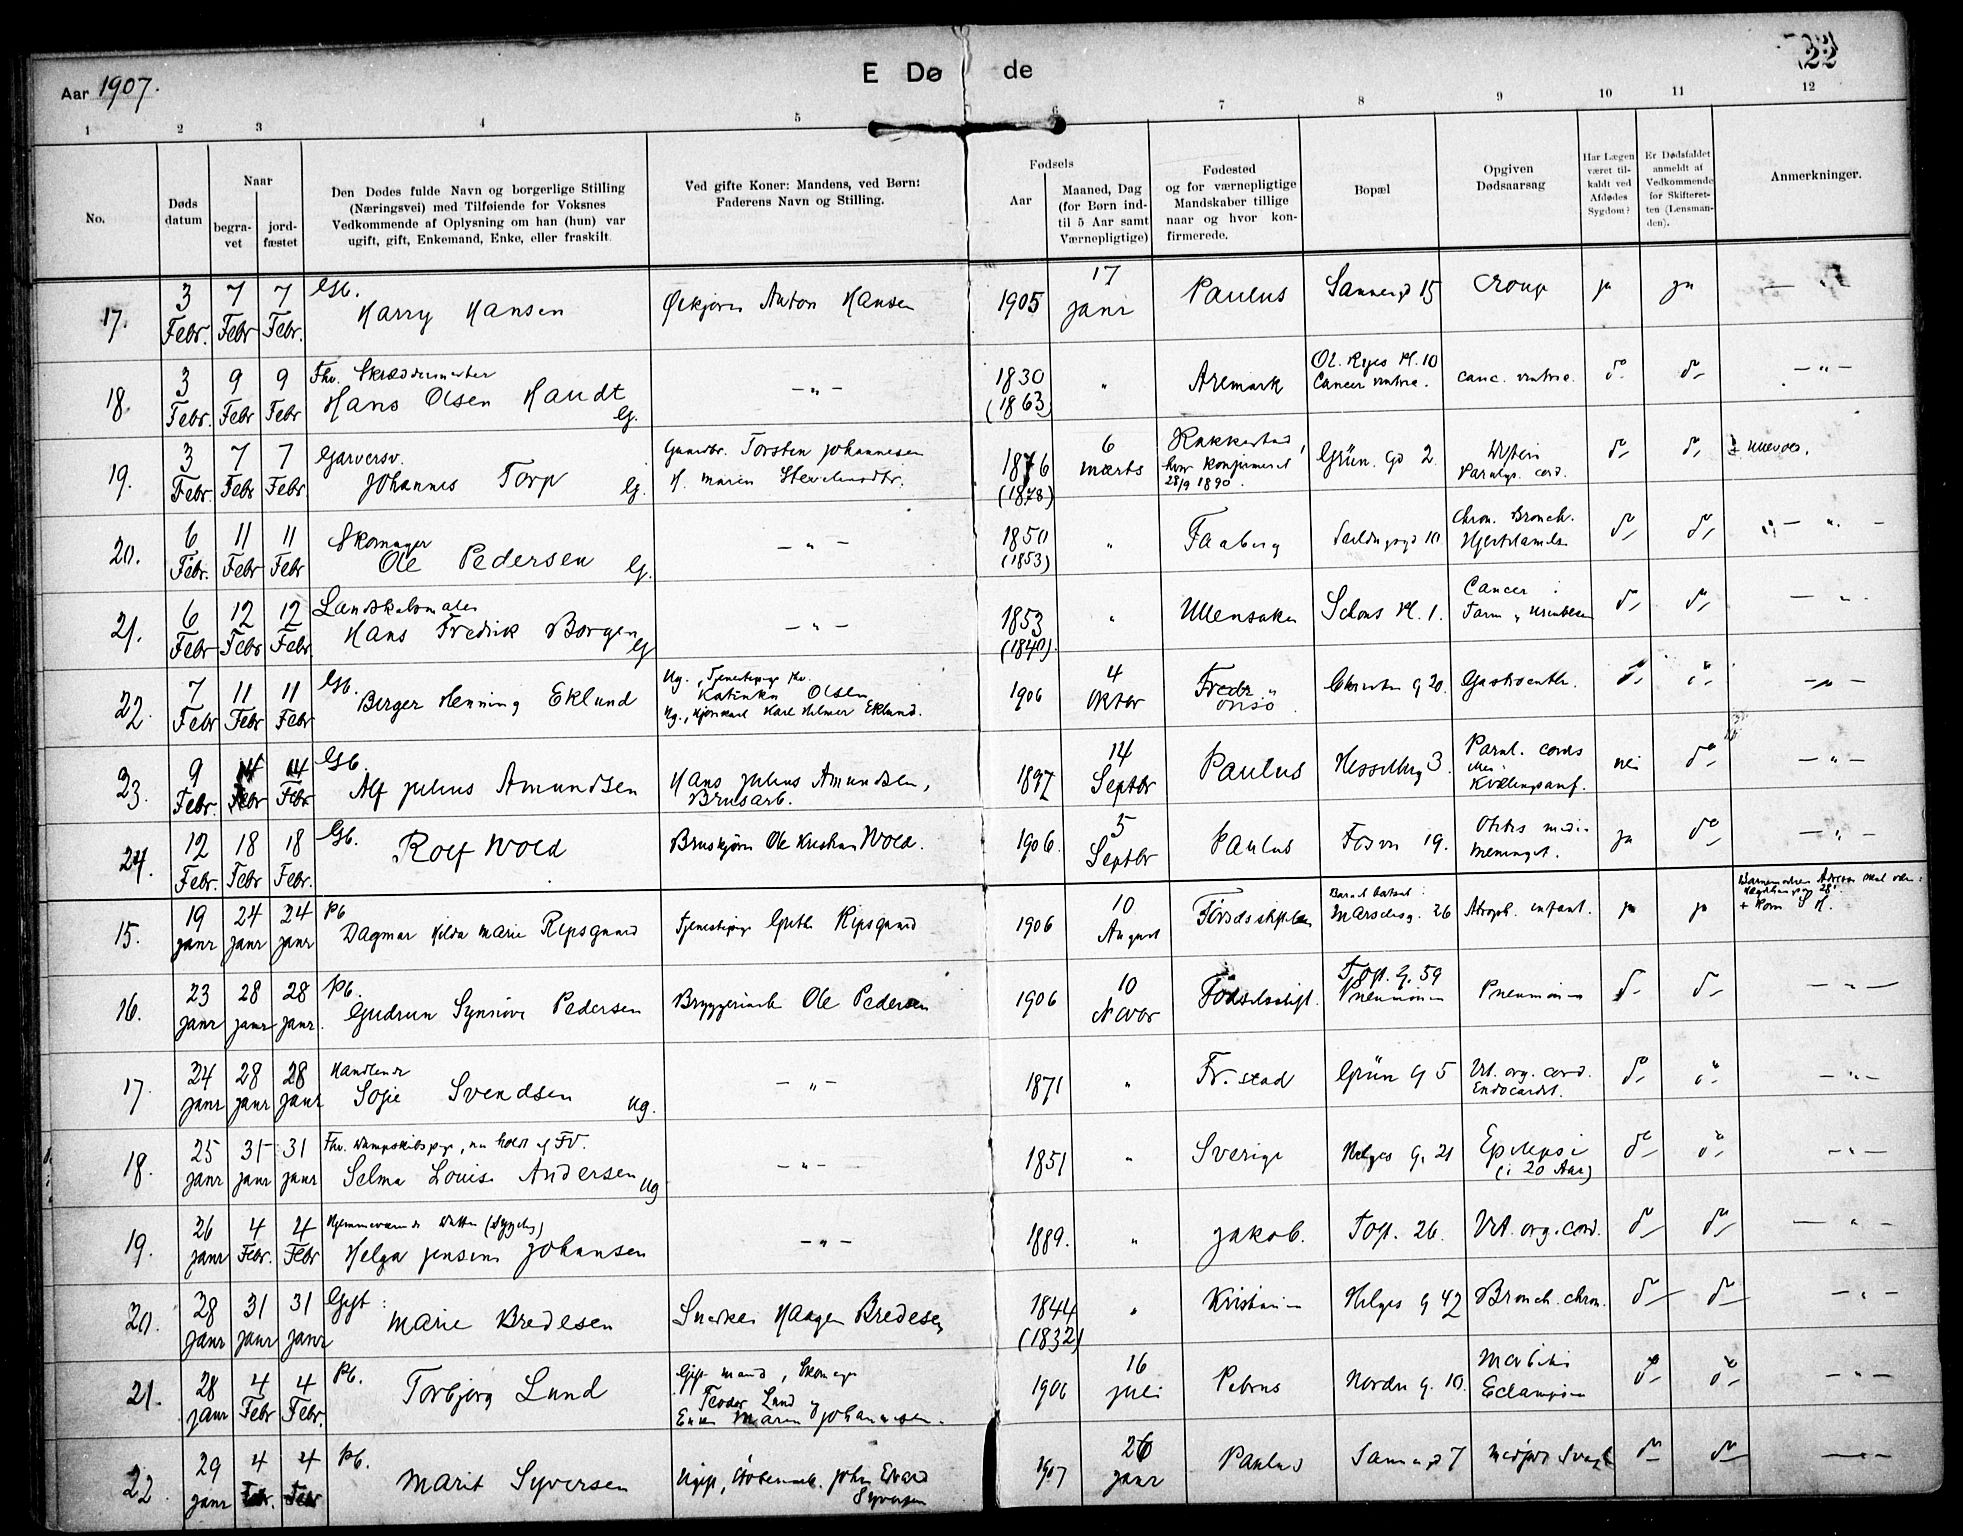 Aar 1907.
E Dø de
22
1 2 3 4 5 6 7 8 9 10 11 12
No.
Døds datum
Naar
begra-vet
jord-fæstet
Den Dødes fulde Navn og borgerlige Stilling
(Næringsvei) med Tilføiende for Voksnes
Vedkommende af Oplysning om han (hun) var
ugift, gift, Enkemand, Enke, eller fraskilt.
Ved gifte Koner: Mandens, ved Børn:
Faderens Navn og Stilling.
Fødsels
Aar
Maaned, Dag
(for Børn ind-
til 5 Aar samt
Værnepligtige)
Fødested
og for værnepligtige
Mandskaber tillige
naar og hvor kon-
firmerede.
Bopæl
Opgiven
Dødsaarsag
Har Lægen
været til-
kaldt ved
Afdødes
Sygdom?
Er Dødsfaldet
anmeldt af
Vedkommende
for Skifteret-
ten (Lensman-
den).
Anmerkninger.
17. 3 Febr. 7 Febr 7 Febr. Gb. Harry Hansen Anton Hansen 1905 17 Janr Paulus Sannergd 15 Croup ja ja
18. 3 Febr. 9 Febr 9 Febr Fhv. Skræddermester
Hans Olsen Haudt G. — " — 1830 (1863) " Aremark Ol. Ryes Pl. 10
Cancer ventric. canc. ventric. do do — " —
19. 3 Febr. 7 Febr. 7 Febr. Garversv.
Johannes Torp G. Gaardbr. Torsten Johannesen 1876 (1878) 6 Marts Rakkestad,
hvor Konfirmeret
28/9 1890. Grün. Gd 2. Paralys. cord. do do
20. 6 Febr. 11 Febr 11 Febr Skomager
Ole Pedersen G. — " — 1850 (1853) " Faaberg Chron. Bronch. do do — " —
21. 6 Febr 12 Febr 12 Febr. Landskabsmaler
Hans Fredrik Borgen G — " — 1853 (1840). " Ullensaker Schous Pl. 1. Cancer i
Tarm do do — " —
22. 7 Febr 11 Febr 11 Febr Gb. Berger Henning Eklund Ug.,
Katinka Olsen
Ug., Karl Helmer Eklund. 1906 4 Oktbr Fredr. Christn G 20. Gastroenter. do do — " —
23. 9 Febr. 14 Febr 14 Febr Gb. Alf Julius Amundsen Hans Julius Amundsen,
Brusarb. 1897 14 Septbr Paulus Hesselbg 3. Paral. cordis
Kvælningsanf. nei do — " —
24. 12 Febr. 18 Febr 18 Febr. Gb. Rolf Wold Bruskjører Ole Kristian Wold. 1906. 5 Septbr Paulus Fosvn 19. Otitis media
Meningit. ja do — " —
15. 19 Janr 24 Janr 24 Janr Pb. Dagmar Hilda Marie Ripsgaard Tjenestepige Ripsgaard 1906 10 August Fødselsstiftelsen 26 Atroph. infant. ja ja
16. 23 Janr 28 Janr 28 Janr. Pb. Gudrun Synnøve Pedersen Bryggeriarb. Ole Pedersen 1906 10 Novbr Fødselsstift. Toft. G. 59
Pneumonia Pneumonia do do — " —
17. 24 Janr 28 Janr 28 Janr Handlende
Sofie Svendsen ug. — " — 1871 " Fr. stad Grün G 5 Vit. org. cord.
Endocardit. do do — " —
18. 25 Janr 31 Janr 31 Janr Fhv. Dampskibspige, nu holdt af FV.
Selma Louise Andersen ug — " — 1851 " Sverige Helges G. 21 Epilepsi
(i 20 Aar) do do — " —
19. 26 Janr 4 Febr. 4 Febr Hjemmeværende Datter
Helga Jensine Johansen — " — 1889. " Jakob. Toft. 26. Vit. org. cord. do do — " —
20. 28 Janr 31 Janr 31 Janr Gift: Marie Bredesen Snedker Haagen Bredesen 1844 (1832) " Kristiania Helges G 42 Bronch. chron. do do — " —
21. 28 Janr 4 Febr 4 Febr. Pb. Torbjørg Lund Gift Mand, Skomager
Teodor Lund og
Johannesen. 1906 16 Juli Petrus Nordre G. 10. Morbilli
Eclampsia do do — " —
22. 29 Janr 4 Febr. 4 Febr Pb. Marit Syversen Ugift, John Edvard
Syversen 1907 26 Janr Paulus Sannergd 7 Medfødt Svagh do do — " —